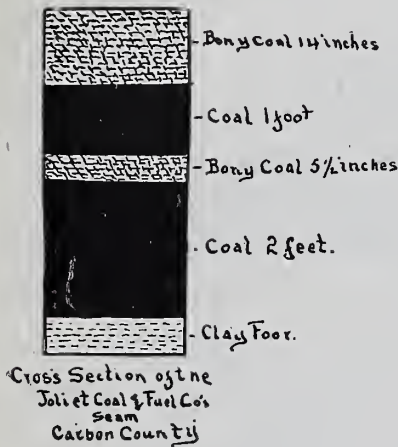 Bony Coal 14 inches
Coal 1 foot
Bony Coal 5½ inches
Coal 2 feet.
Clay Foor.
Cross Section of the
Joliet Coal & Fuel Co's
Seam
Carbon County